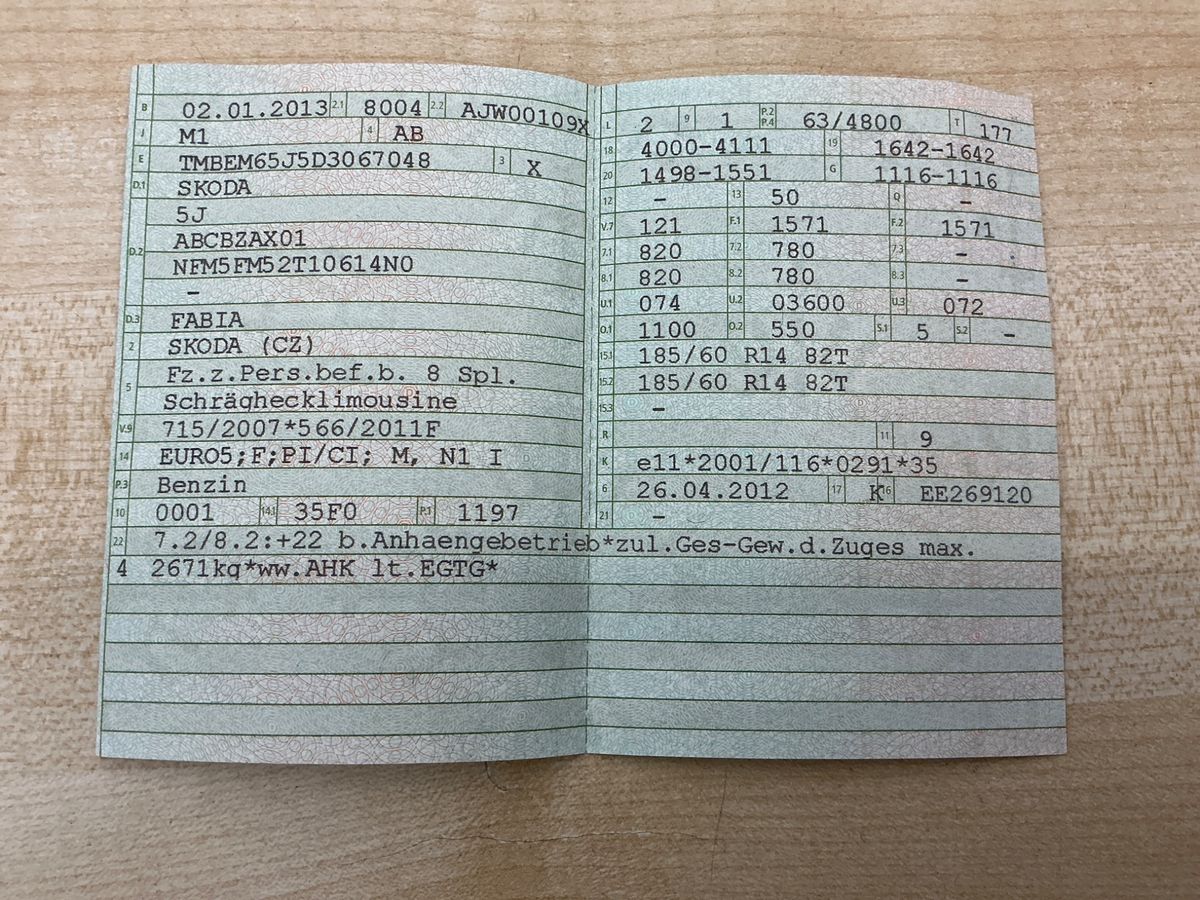 B 02.01.2013 2.1 8004 2.2 AJW00109X
J M1 4 AB
E TMBEM65J5D3067048 3 X
D.1 SKODA
5J
D.2 ABCBZAX01
NFM5FM52T10614N0
–
D.3 FABIA
2 SKODA (CZ)
5 Fz.z.Pers.bef.b. 8 Spl.
Schräghecklimousine
V.9 715/2007*566/2011F
14 EURO5;F;PI/CI; M, N1 I
P.3 Benzin
10 0001 14.1 35F0 P.1 1197
L 2 9 1 P.2 P.4 63/4800 T 177
18 4000-4111 19 1642-1642
20 1498-1551 G 1116-1116
12 – 13 50 Q –
V.7 121 F.1 1571 F.2 1571
7.1 820 7.2 780 7.3 –
8.1 820 8.2 780 8.3 –
U.1 074 U.2 03600 U.3 072
O.1 1100 O.2 550 S.1 5 S.2 –
15.1 185/60 R14 82T
15.2 185/60 R14 82T
15.3 –
R 11 9
K e11*2001/116*0291*35
6 26.04.2012 17 K 16 EE269120
21 –
22 7.2/8.2:+22 b.Anhaengebetrieb*zul.Ges-Gew.d.Zuges max.
4 2671kg*ww.AHK lt.EGTG*